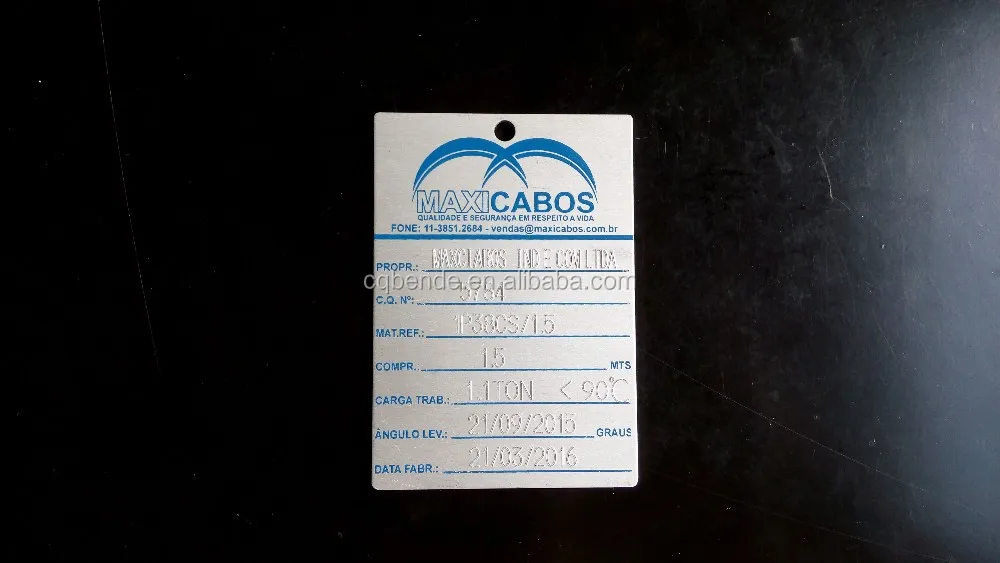 MAXICABOS
QUALIDADE E SEGURANÇA EM RESPEITO A VIDA
FONE: 11-3851.2684 - vendas@maxicabos.com.br
PROPR.: MAXCIABOS IND E COM LTDA
cqbende.en.alibaba.com
C.Q. Nº: 5784
MAT.REF.: 1P38CS/1.5
COMPR.. 1.5 MTS
CARGA TRAB.: 1.1TON < 90℃
ÂNGULO LEV.: 21/09/2015 GRAUS
DATA FABR.: 21/03/2016